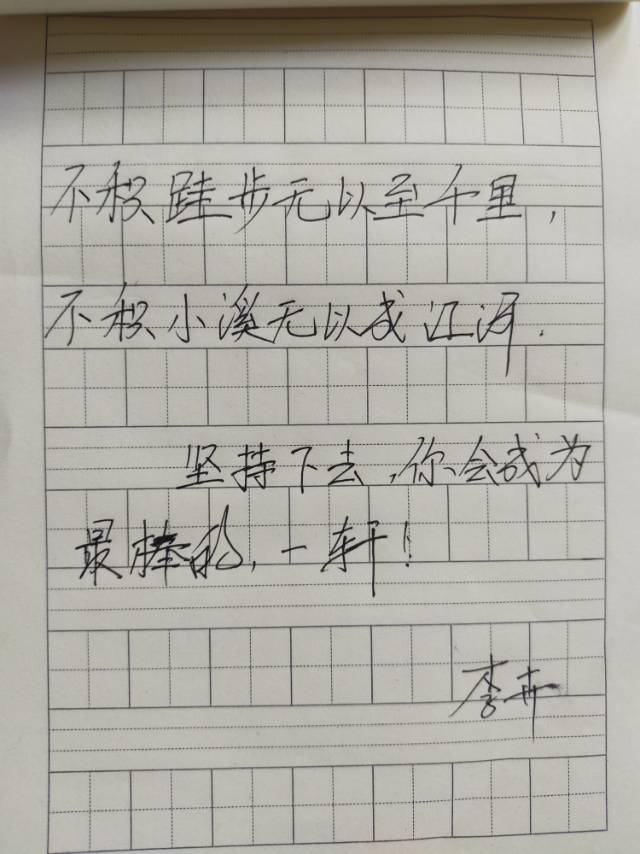 不积跬步无以至千里，
不积小溪无以成江河.
坚持下去,你会成为
最棒的,一轩!
李冉